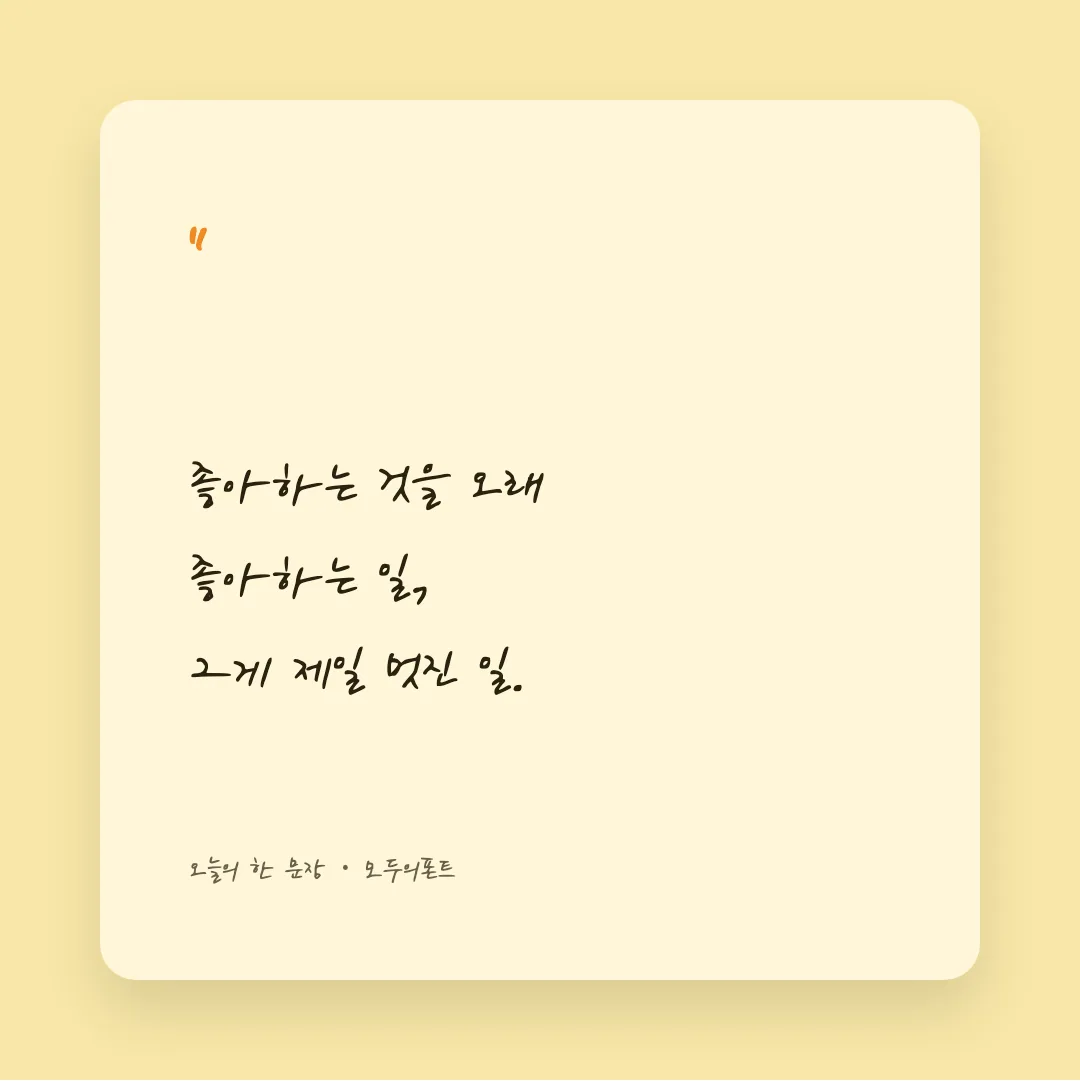 "
좋아하는 것을 오래
좋아하는 일,
그게 제일 멋진 일.
오늘의 한 문장 · 모두의폰트